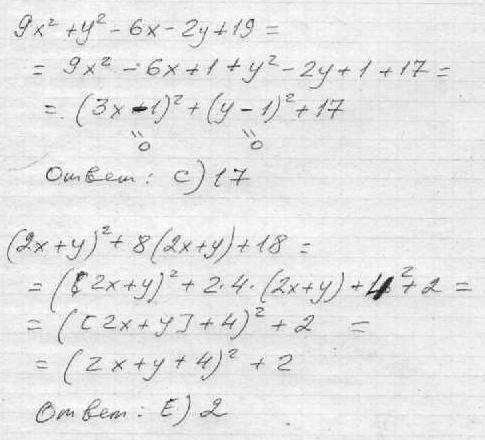 9x² + y² - 6x - 2y + 19 =
= 9x² - 6x + 1 + y² - 2y + 1 + 17 =
= (3x - 1)² + (y - 1)² + 17
"0 "0
Ответ: C) 17
(2x+y)² + 8(2x+y) + 18 =
= ([2x+y)² + 2·4·(2x+y) + 4² + 2 =
= ([2x+y] + 4)² + 2 =
= (2x+y+4)² + 2
Ответ: E) 2